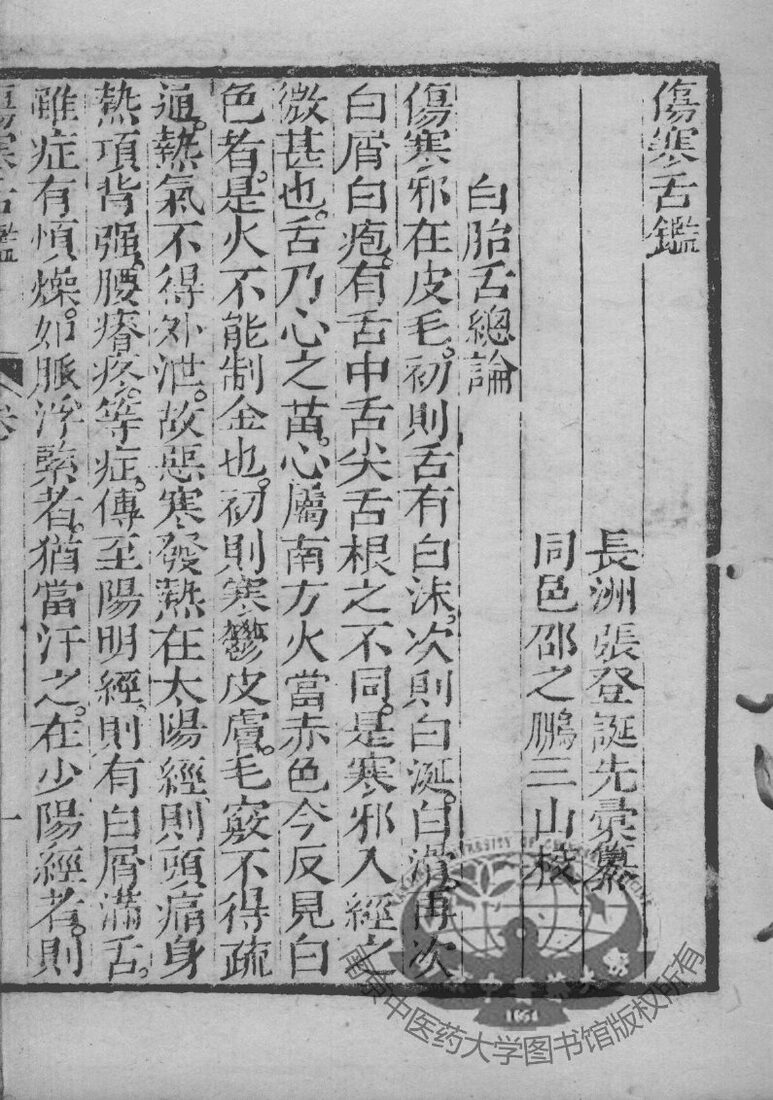 傷寒舌鑑
長洲張登誕先彙纂
同邑邵之鵬三山校
白胎舌總論
傷寒邪在皮毛。初則舌有白沫。次則白涎。白滑。再次
白屑白疱。有舌中舌尖舌根之不同。是寒邪入經之
微甚也。舌乃心之苗。心屬南方火當赤色今反見白
色者。是火不能制金也。初則寒鬱皮膚。毛竅不得疏
通。熱氣不得外泄。故惡寒發熱在太陽經則頭痛身
熱項背强。腰脊疼。等症。傳至陽明經。則有白屑滿舌。
雖症有煩燥。如脈浮緊者。猶當汗之。在少陽經者。則
傷寒舌鑑
卷
一
南京中医药大学图书馆版权所有
1954